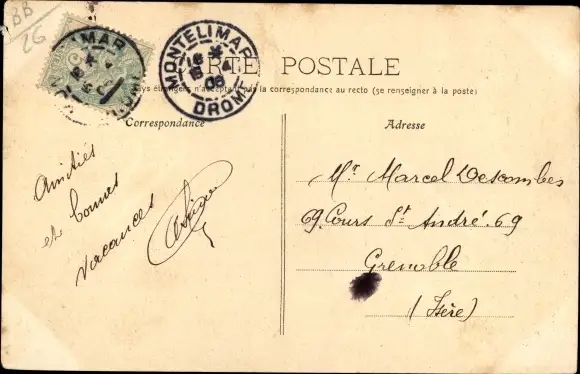 BB
26
MONTELIMAR
DROME
CARTE POSTALE
pays étrangers n'acceptent pas la correspondance au recto (se renseigner à la poste)
Correspondance
Adresse
Amitiés
et bonnes
vacances
Mr. Marcel Descombes
69. Cours St André. 69
Grenoble
(Isère)